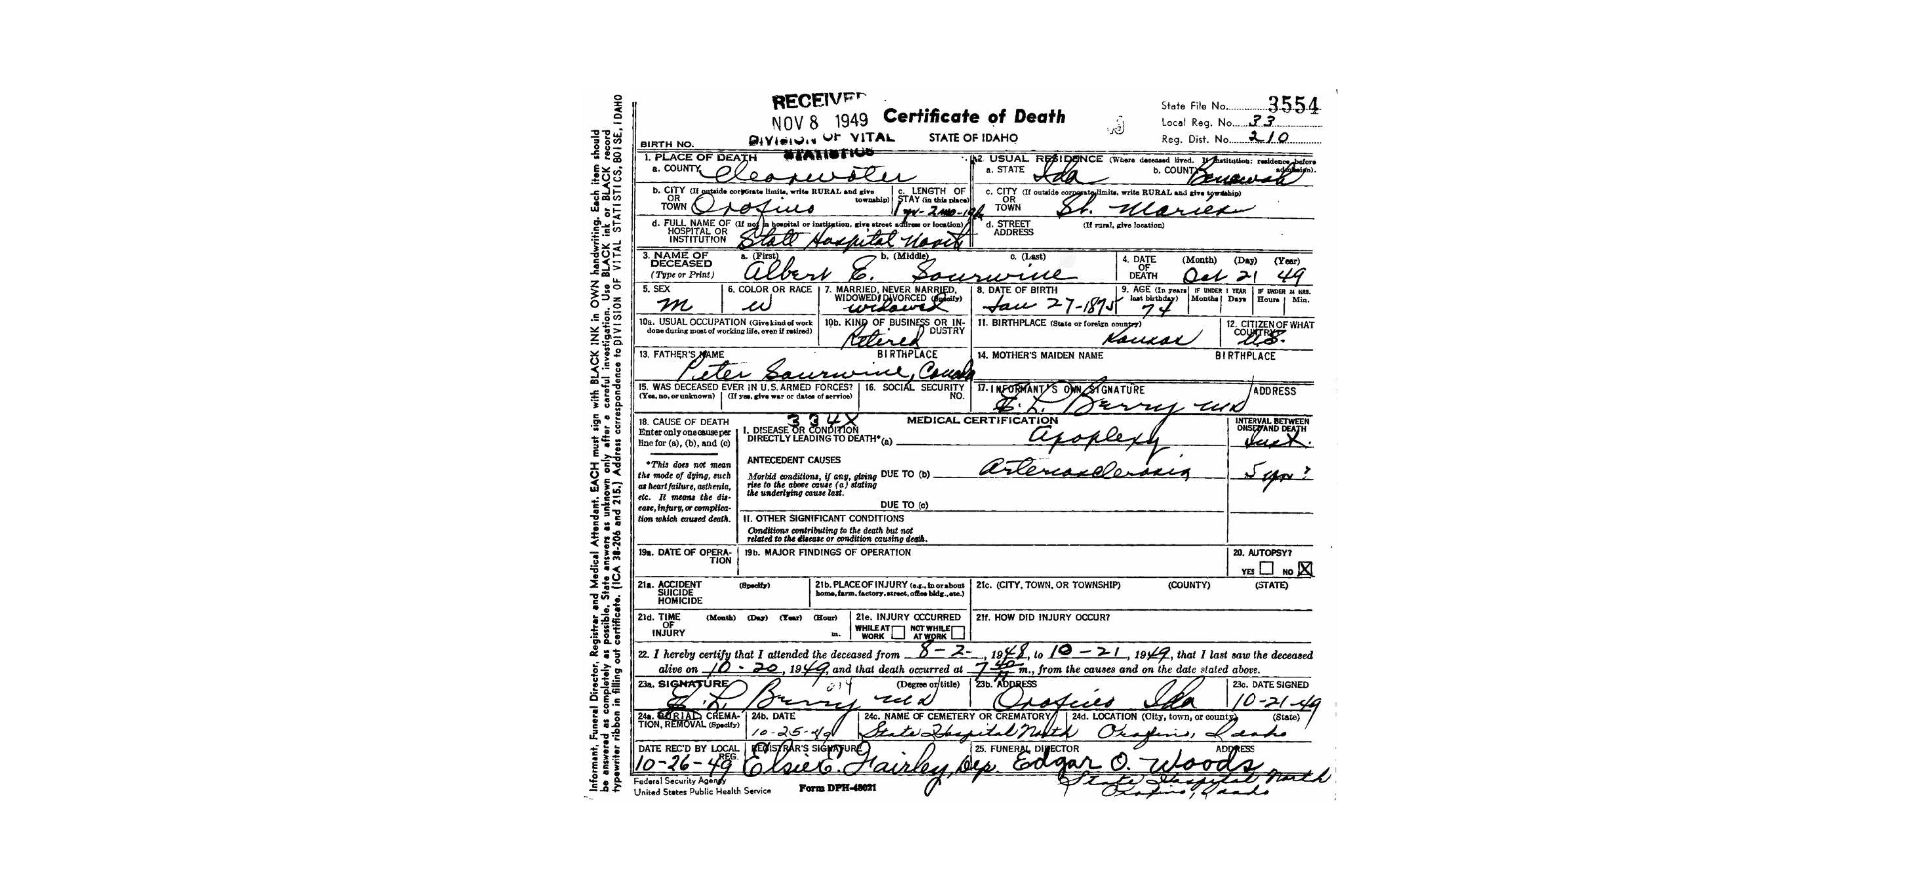 RECEIVED
NOV 8 1949
DIVISION OF VITAL
STATISTICS
Certificate of Death
STATE OF IDAHO
State File No. 3554
Local Reg. No. 33
Reg. Dist. No. 210
BIRTH NO.
1. PLACE OF DEATH
a. COUNTY Clearwater
2. USUAL RESIDENCE (Where deceased lived. If institution: residence before admission).
a. STATE Ida b. COUNTY Benewah
b. CITY (If outside corporate limits, write RURAL and give township) OR TOWN Orofino
c. LENGTH OF STAY (in this place) 1 yr-2mo-
c. CITY (If outside corporate limits, write RURAL and give township) OR TOWN St. Maries
d. FULL NAME OF (If not in hospital or institution, give street address or location) HOSPITAL OR INSTITUTION State Hospital North
d. STREET ADDRESS (If rural, give location)
3. NAME OF DECEASED (Type or Print) a. (First) b. (Middle) c. (Last)
Albert E. Sourwine
4. DATE OF DEATH (Month) (Day) (Year)
Oct 21 49
5. SEX M
6. COLOR OR RACE W
7. MARRIED, NEVER MARRIED, WIDOWED, DIVORCED (Specify) widowed
8. DATE OF BIRTH Jan 27-1875
9. AGE (In years last birthday) 74
IF UNDER 1 YEAR Months Days
IF UNDER 24 HRS. Hours Min.
10a. USUAL OCCUPATION (Give kind of work done during most of working life, even if retired)
10b. KIND OF BUSINESS OR INDUSTRY Retired
11. BIRTHPLACE (State or foreign country) Kansas
12. CITIZEN OF WHAT COUNTRY? U.S.
13. FATHER'S NAME BIRTHPLACE
Peter Sourwine, Canada
14. MOTHER'S MAIDEN NAME BIRTHPLACE
15. WAS DECEASED EVER IN U.S. ARMED FORCES? (Yes, no, or unknown) (If yes, give war or dates of service)
16. SOCIAL SECURITY NO.
17. INFORMANT'S OWN SIGNATURE ADDRESS
E. L. Berry MD
18. CAUSE OF DEATH
Enter only one cause per line for (a), (b), and (c)
*This does not mean the mode of dying, such as heart failure, asthenia, etc. It means the disease, injury, or complication which caused death.
334X
MEDICAL CERTIFICATION
INTERVAL BETWEEN ONSET AND DEATH
I. DISEASE OR CONDITION DIRECTLY LEADING TO DEATH*(a) Apoplexy Inst.
ANTECEDENT CAUSES
Morbid conditions, if any, giving rise to the above cause (a) stating the underlying cause last.
DUE TO (b) Arteriosclerosis 5 yrs?
DUE TO (c)
II. OTHER SIGNIFICANT CONDITIONS
Conditions contributing to the death but not related to the disease or condition causing death.
19a. DATE OF OPERATION
19b. MAJOR FINDINGS OF OPERATION
20. AUTOPSY?
YES NO X
21a. ACCIDENT SUICIDE HOMICIDE (Specify)
21b. PLACE OF INJURY (e.g., in or about home, farm, factory, street, office bldg., etc.)
21c. (CITY, TOWN, OR TOWNSHIP) (COUNTY) (STATE)
21d. TIME OF INJURY (Month) (Day) (Year) (Hour) m.
21e. INJURY OCCURRED WHILE AT WORK NOT WHILE AT WORK
21f. HOW DID INJURY OCCUR?
22. I hereby certify that I attended the deceased from 8-2-, 1948, to 10-21, 1949, that I last saw the deceased
alive on 10-20, 1949, and that death occurred at 7 40 m., from the causes and on the date stated above.
23a. SIGNATURE (Degree or title)
E L Berry MD
23b. ADDRESS Orofino Ida
23c. DATE SIGNED 10-21-49
24a. BURIAL, CREMATION, REMOVAL (Specify)
24b. DATE 10-25-49
24c. NAME OF CEMETERY OR CREMATORY State Hospital North
24d. LOCATION (City, town, or county) (State) Orofino, Idaho
DATE REC'D BY LOCAL REG. 10-26-49
REGISTRAR'S SIGNATURE Elsie E. Fairley, Dep.
25. FUNERAL DIRECTOR ADDRESS
Edgar O. Woods
State Hospital North
Orofino, Idaho
Federal Security Agency
United States Public Health Service
Form DPH-48021
Informant, Funeral Director, Registrar and Medical Attendant. EACH must sign with BLACK INK in OWN handwriting. Each item should
be answered as completely as possible. State answers as unknown only after a careful investigation. Use BLACK ink or BLACK record
typewriter ribbon in filling out certificate. (ICA 38-206 and 215.) Address correspondence to DIVISION OF VITAL STATISTICS, BOISE, IDAHO